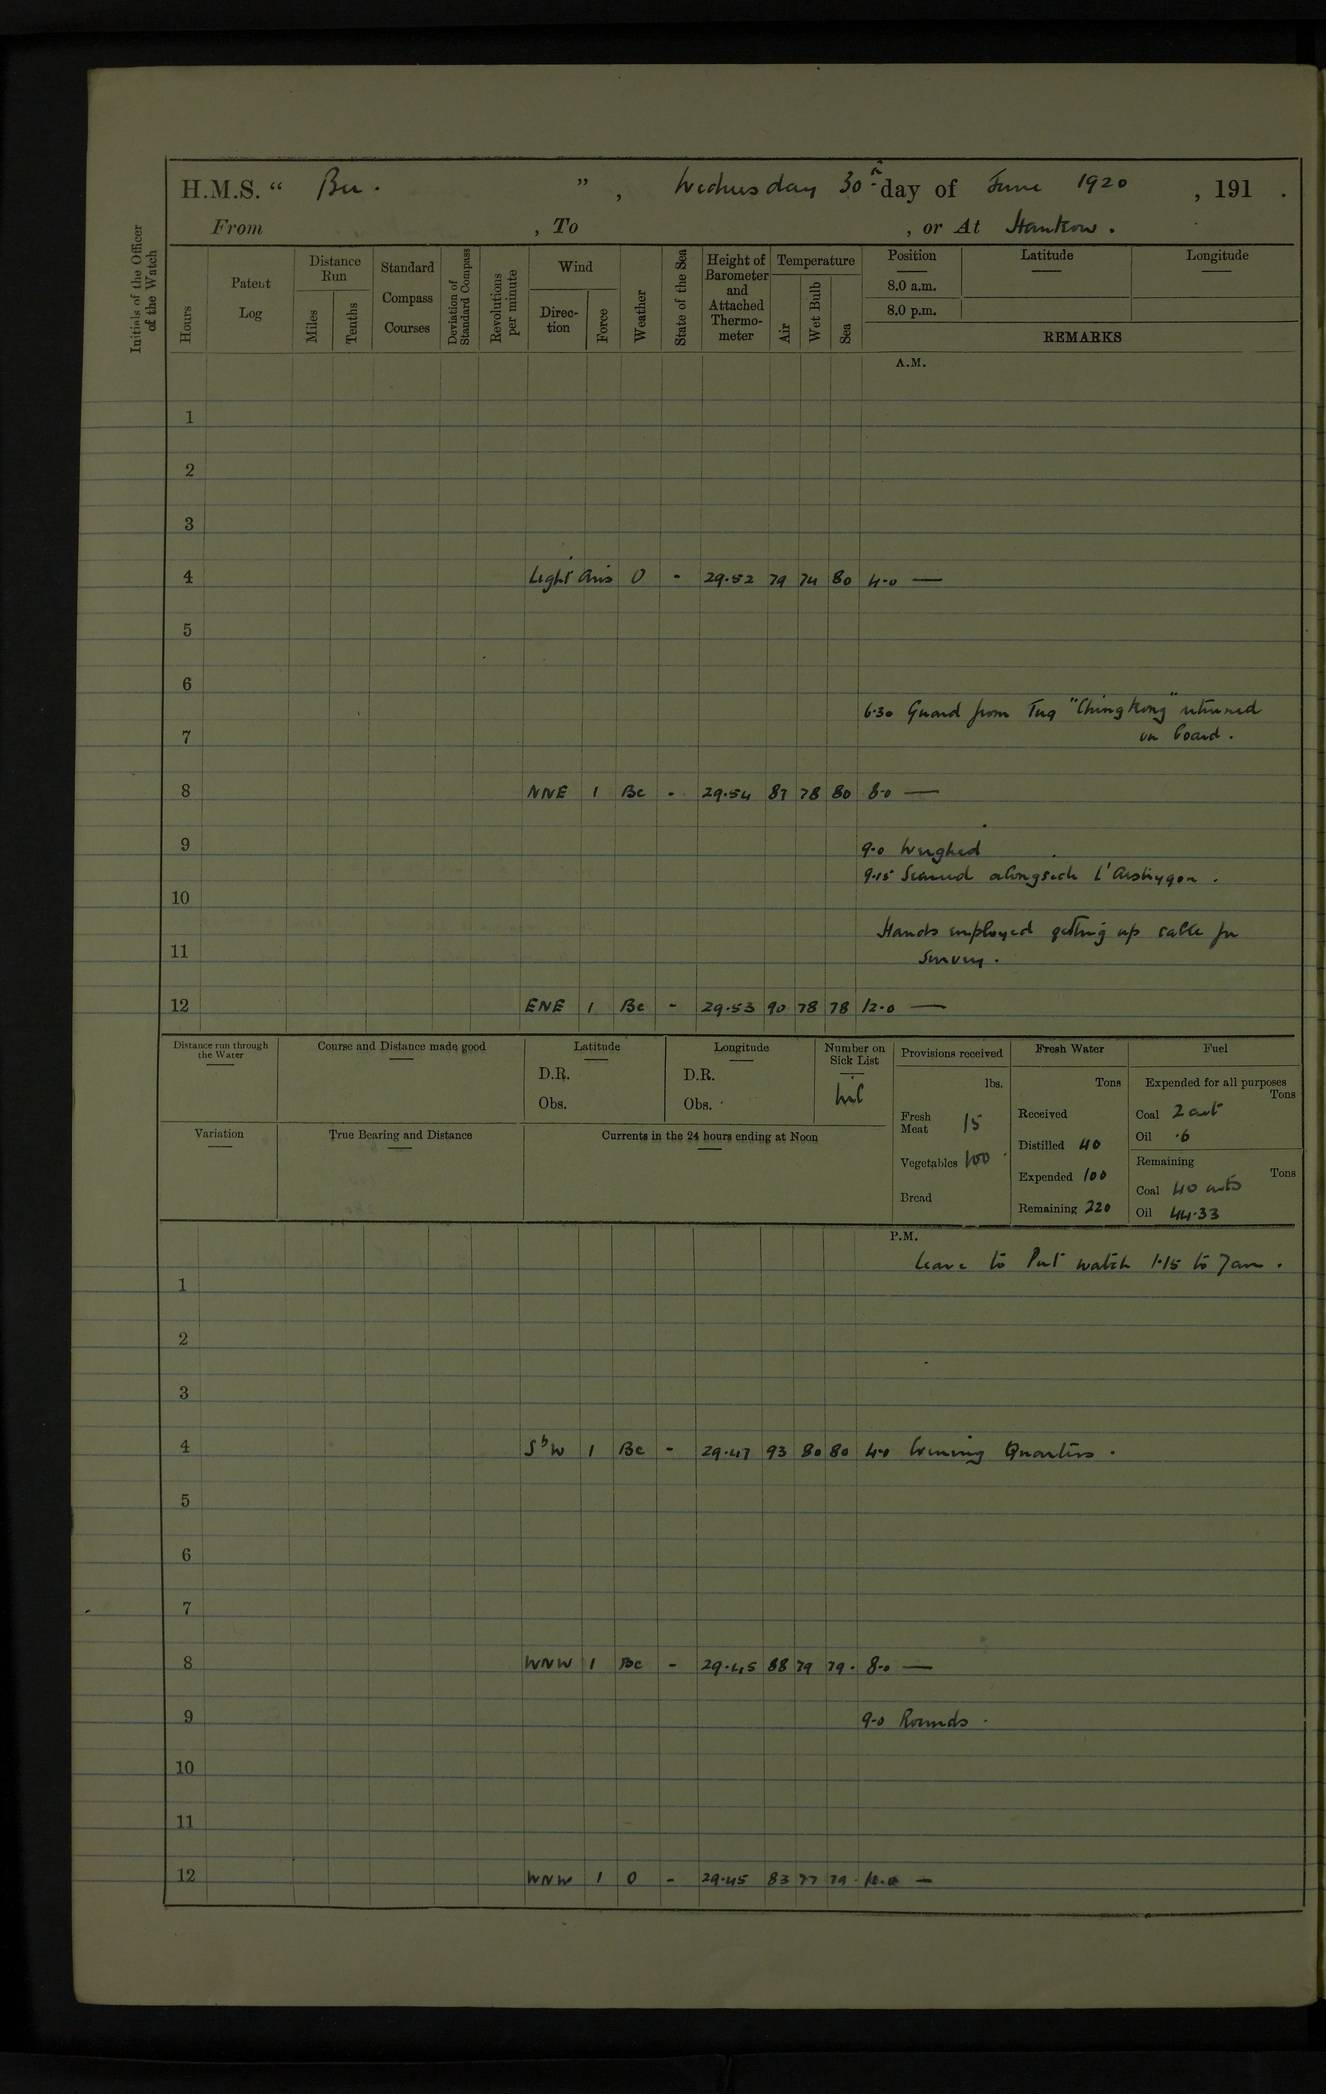 H.M.S. “ Bee. ”, Wednesday 30th day of June 1920, 191 .
From , To , or At Hankow.
Initials of the Officer of the Watch
Hours
Patent Log
Distance Run
Miles
Tenths
Standard Compass Courses
Deviation of Standard Compass
Revolutions per minute
Wind
Direction
Force
Weather
State of the Sea
Height of Barometer and Attached Thermometer
Temperature
Air
Wet Bulb
Sea
Position
8.0 a.m.
8.0 p.m.
Latitude
Longitude
REMARKS
A.M.
1
2
3
4 Light airs O - 29.52 79 74 80 4.0 —
5
6
6.30 Guard from Tug "Ching Kong" returned
7 on board.
8 NNE 1 Bc - 29.54 87 78 80 8.0 —
9 9.0 Weighed
9.15 Secured alongside
10
Hands employed getting up cable for
11 survey.
12 ENE 1 Bc - 29.53 90 78 78 12.0 —
Distance run through the Water
Course and Distance made good
Latitude
D.R.
Obs.
Longitude
D.R.
Obs.
Number on Sick List
Nil
Variation
True Bearing and Distance
Currents in the 24 hours ending at Noon
Provisions received
lbs.
Fresh Meat 15
Vegetables 100
Bread
Fresh Water
Tons
Received
Distilled 40
Expended 100
Remaining 220
Fuel
Expended for all purposes
Tons
Coal 2 cwt
Oil .6
Remaining
Tons
Coal 40 cwts
Oil 44.33
P.M.
Leave to Port watch 1.15 to 7am.
1
2
3
4 SbW 1 Bc - 29.47 93 80 80 4.0 Evening Quarters.
5
6
7
8 WNW 1 Bc - 29.45 88 79 79. 8.0 —
9 9.0 Rounds.
10
11
12 WNW 1 O - 29.45 83 77 79 12.0 —